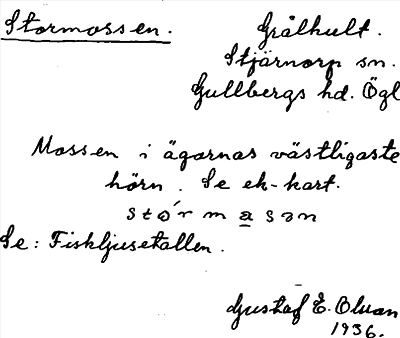 Stormossen.
Grålhult.
Stjärnorp sn.
Gullbergs hd. Ögl
Mossen i ägornas västligaste
hörn. Se ek-kart.
stórmasən
Se: Fiskljusetallen.
Gustaf E. Olsson
1936.